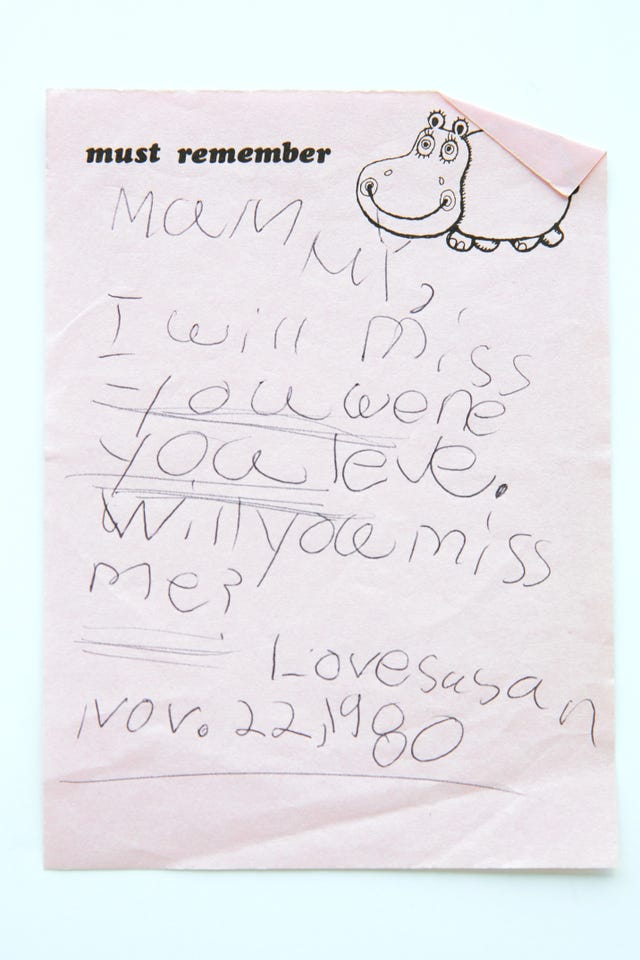 must remember
Mammy,
I will miss
you wene
you leve.
Will you miss
me?
Love susan
Nov. 22, 1980